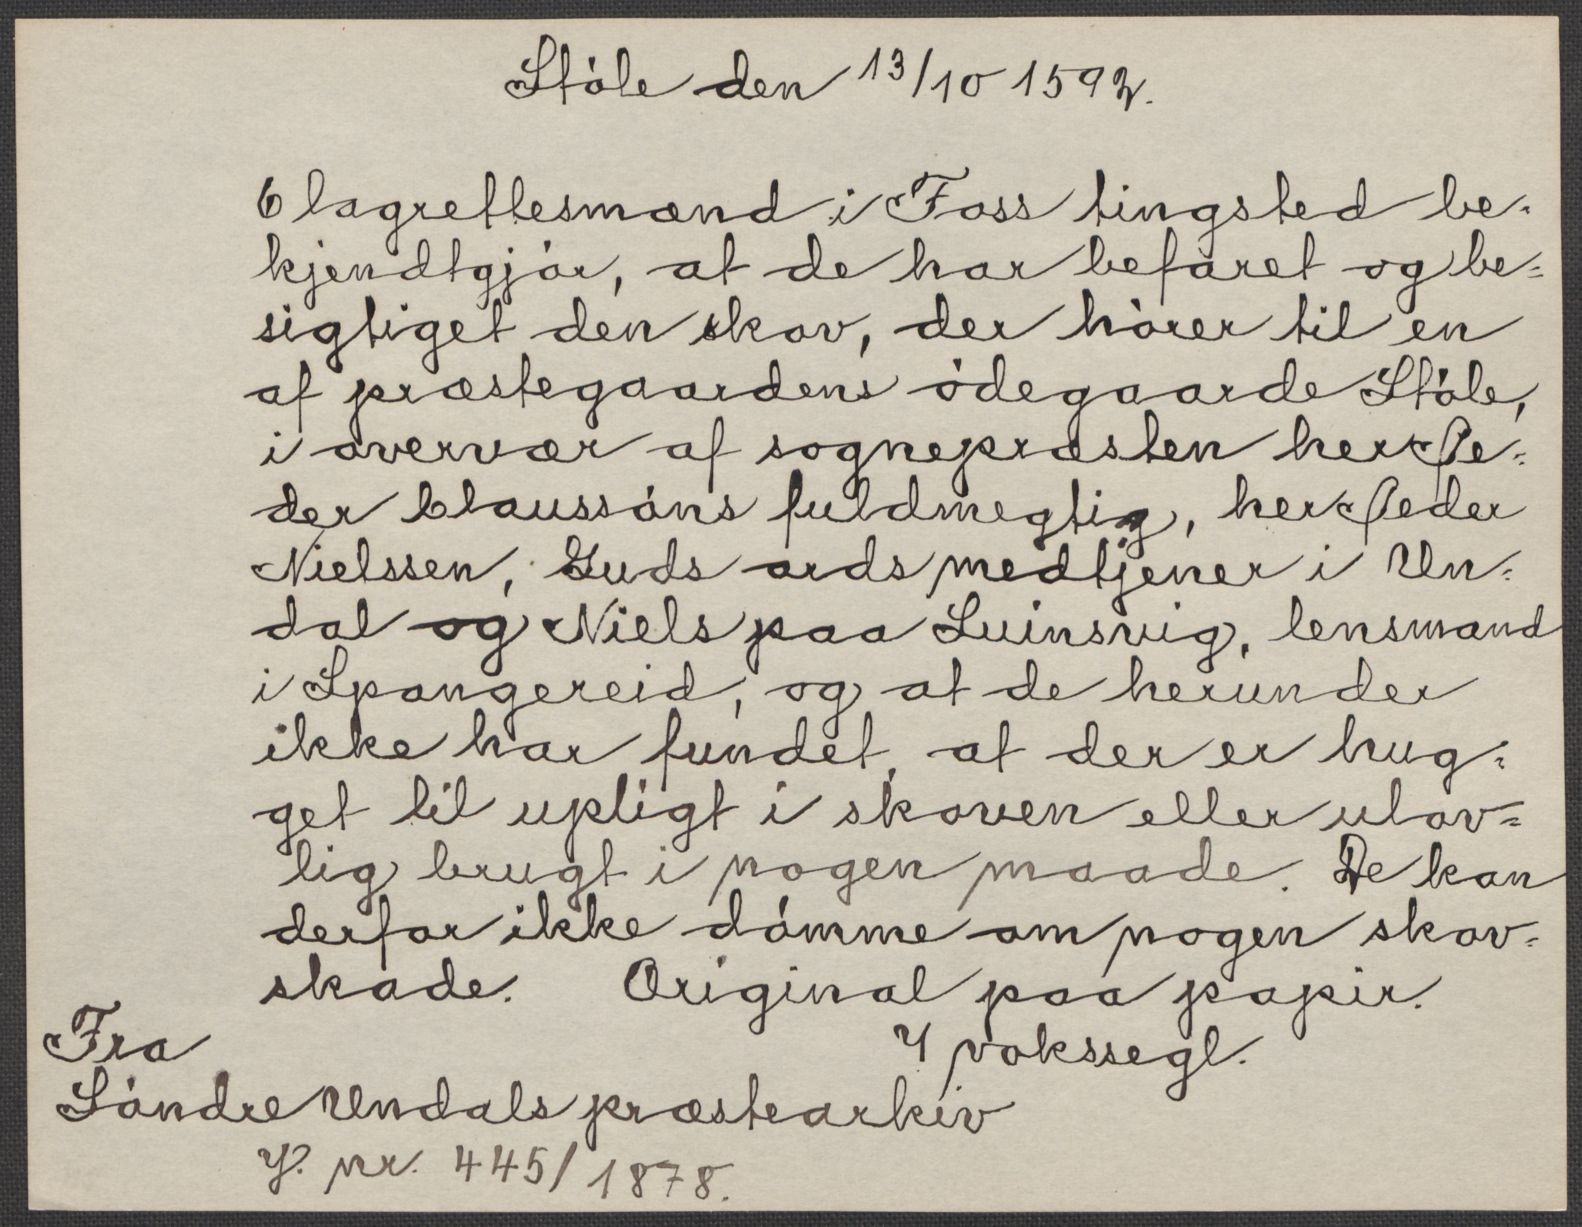 Ståle den 13/10 1592.
6 lagrettesmænd i Foss tingsted be-
kjendtgjór, at de har befaret og be-
sigtiget den skov, der hórer til en
af præstegaardens ódegaarde Ståle,
i overvær af sognepræsten her Pe-
der Claussóns fuldmegtig, her Peder
Nielssen, Guds ords medtjener i Un-
dal og Niels paa Svinsvig, lensmand
i Spangereid, og at de herunder
ikke har fundet, at der er hug-
get til upligt i skoven eller ulov-
lig brugt i nogen maade. De kan
derfor ikke dómme om nogen skov-
skade. Original paa papir.
Fra 4 vokssegl.
Sóndre Undals præstearkiv
J. nr. 445/1878.